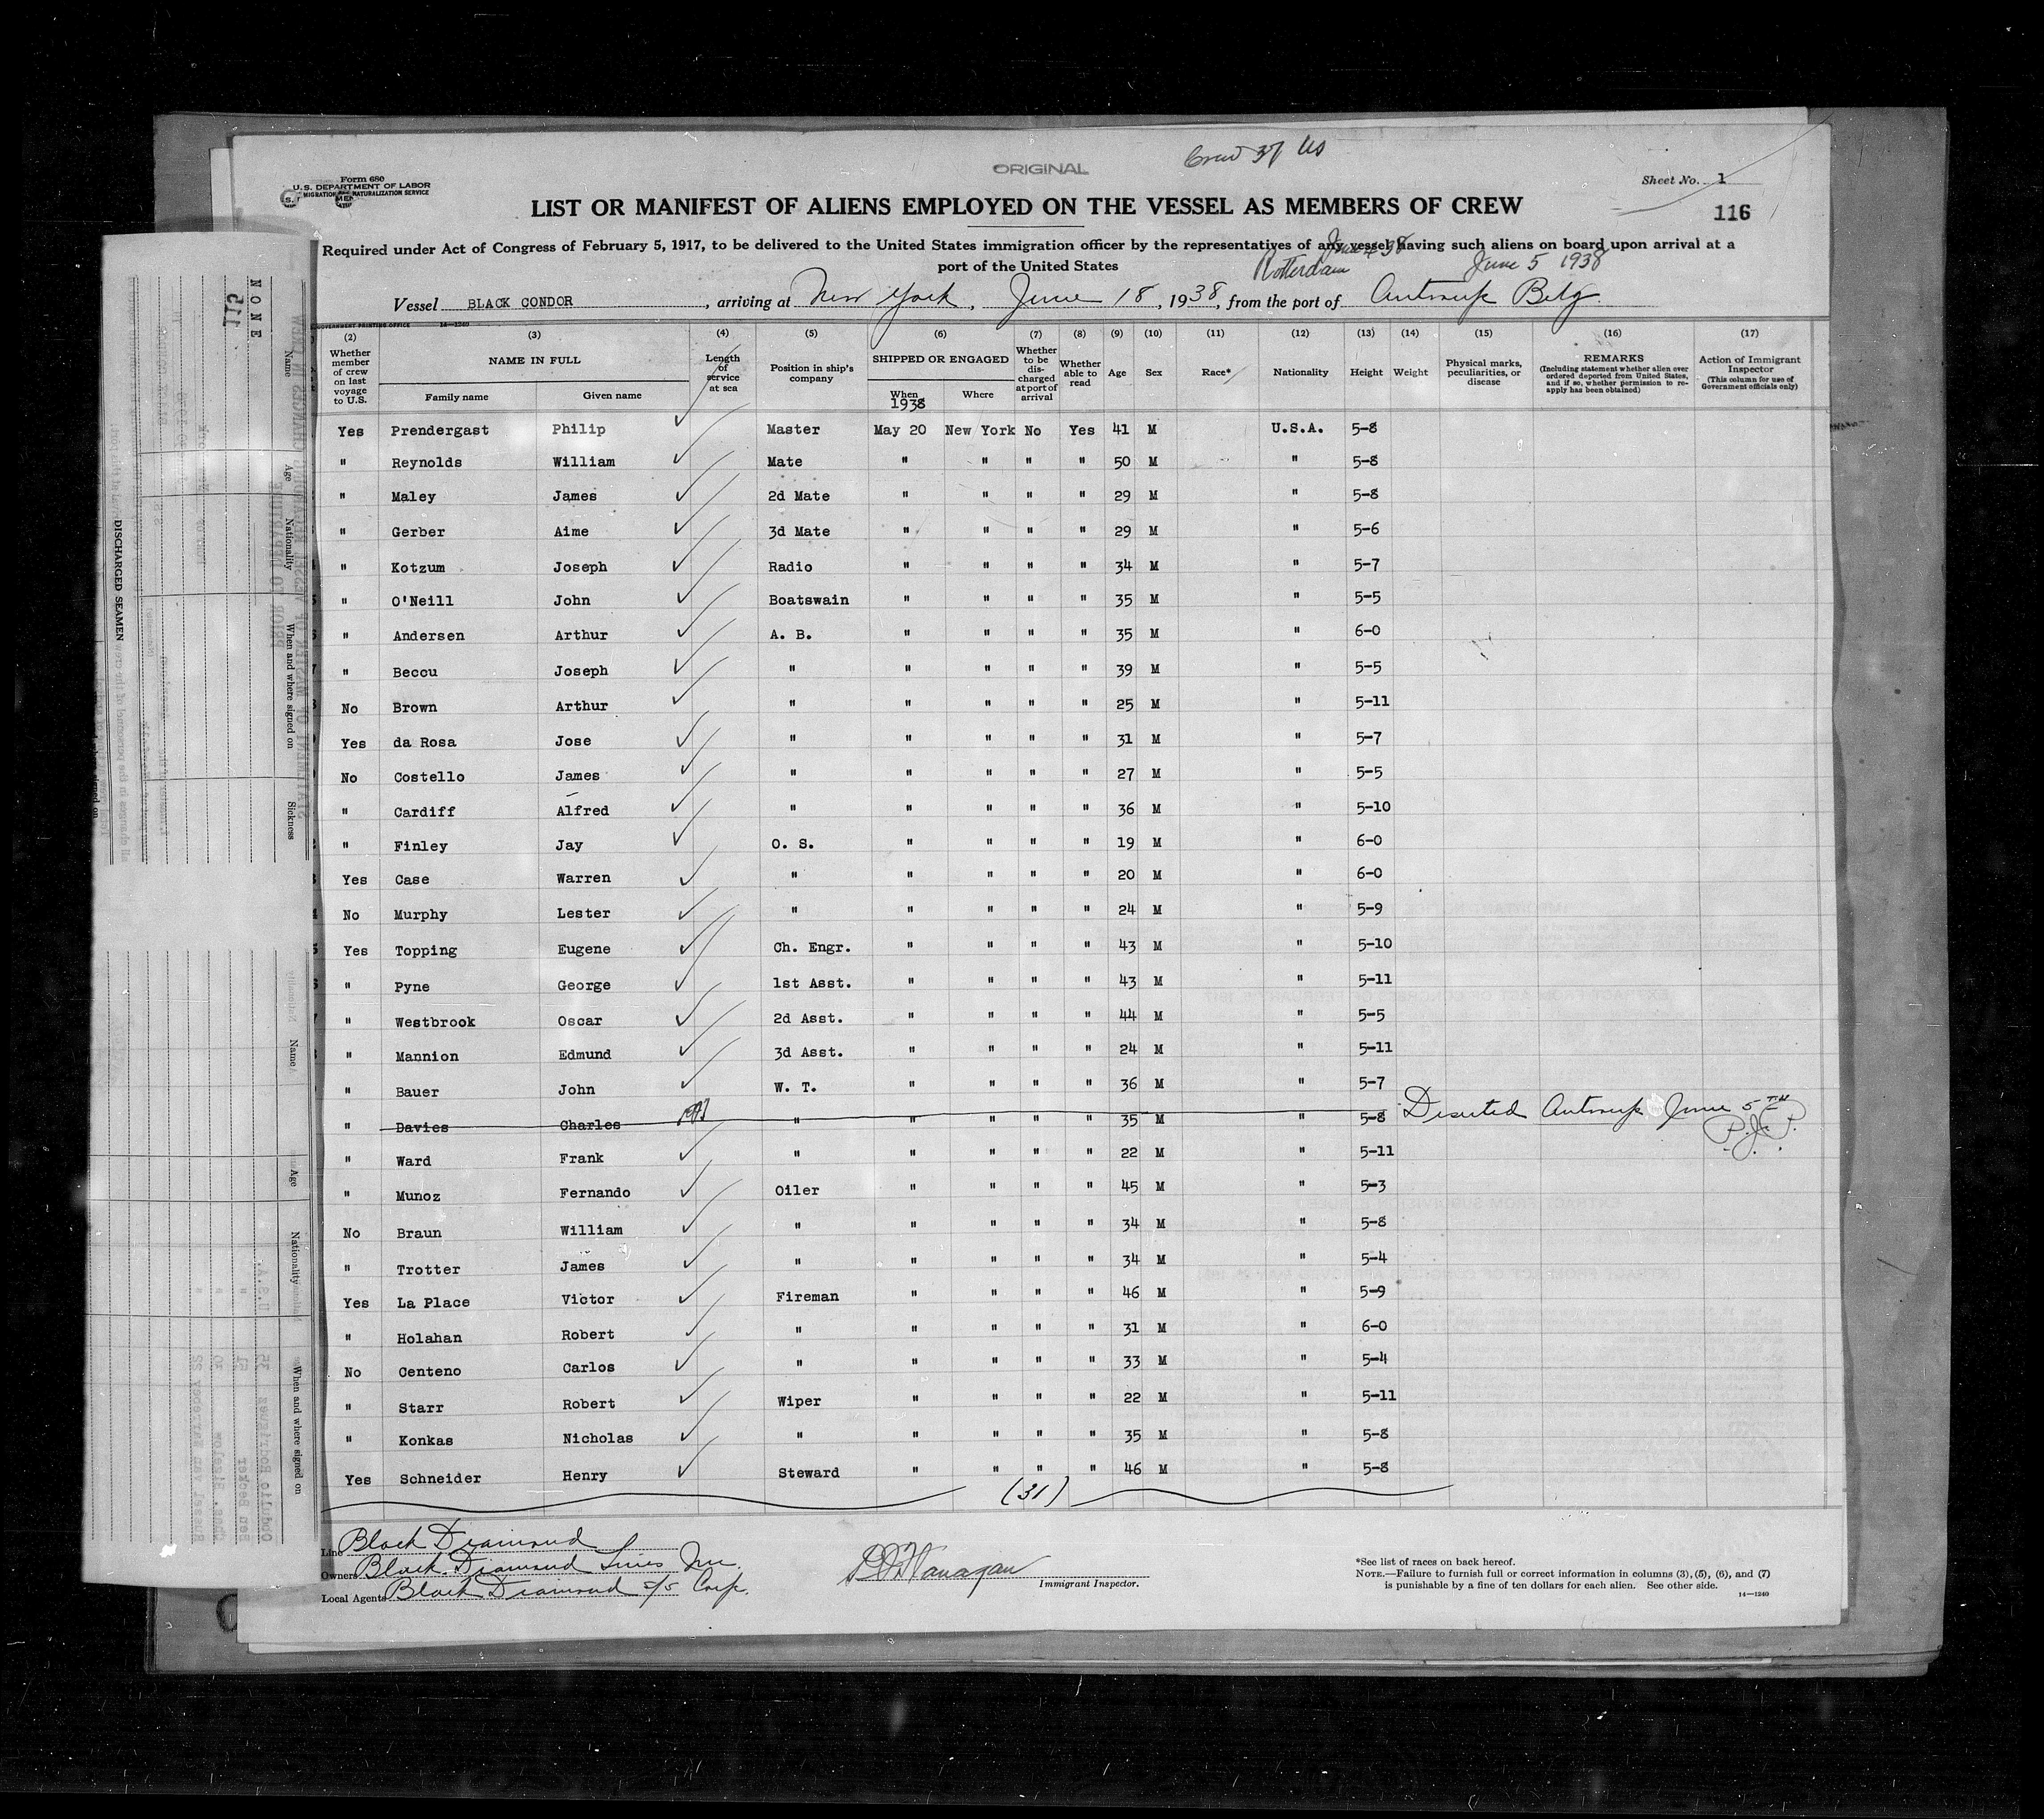 Crew 37 US
ORIGINAL
Form 680
U.S. DEPARTMENT OF LABOR
NATURALIZATION SERVICE
Sheet No. 1
116
LIST OR MANIFEST OF ALIENS EMPLOYED ON THE VESSEL AS MEMBERS OF CREW
Required under Act of Congress of February 5, 1917, to be delivered to the United States immigration officer by the representatives of any vessel having such aliens on board upon arrival at a
port of the United States
Rotterdam June 5 1938
Vessel BLACK CONDOR, arriving at New York, June 18, 1938, from the port of Antwerp Belg.
GOVERNMENT PRINTING OFFICE 14—1240
(2) (3) (4) (5) (6) (7) (8) (9) (10) (11) (12) (13) (14) (15) (16) (17)
Whether member of crew on last voyage to U.S. NAME IN FULL Family name Given name Length of service at sea Position in ship's company SHIPPED OR ENGAGED When Where Whether to be discharged at port of arrival Whether able to read Age Sex Race* Nationality Height Weight Physical marks, peculiarities, or disease REMARKS (Including statement whether alien ever ordered deported from United States, and if so, whether permission to reapply has been obtained) Action of Immigrant Inspector (This column for use of Government officials only)
1938
Yes Prendergast Philip Master May 20 New York No Yes 41 M U.S.A. 5-8
" Reynolds William Mate " " " " 50 M " 5-8
" Maley James 2d Mate " " " " 29 M " 5-8
" Gerber Aime 3d Mate " " " " 29 M " 5-6
" Kotzum Joseph Radio " " " " 34 M " 5-7
" O'Neill John Boatswain " " " " 35 M " 5-5
" Andersen Arthur A. B. " " " " 35 M " 6-0
" Beccu Joseph " " " " " 39 M " 5-5
No Brown Arthur " " " " " 25 M " 5-11
Yes da Rosa Jose " " " " " 31 M " 5-7
No Costello James " " " " " 27 M " 5-5
" Cardiff Alfred " " " " " 36 M " 5-10
" Finley Jay O. S. " " " " 19 M " 6-0
Yes Case Warren " " " " " 20 M " 6-0
No Murphy Lester " " " " " 24 M " 5-9
Yes Topping Eugene Ch. Engr. " " " " 43 M " 5-10
" Pyne George 1st Asst. " " " " 43 M " 5-11
" Westbrook Oscar 2d Asst. " " " " 44 M " 5-5
" Mannion Edmund 3d Asst. " " " " 24 M " 5-11
" Bauer John W. T. " " " " 36 M " 5-7
" Davies Charles " " " " " 35 M " 5-8 Deserted Antwerp June 5TH P.J.P.
" Ward Frank " " " " " 22 M " 5-11
" Munoz Fernando Oiler " " " " 45 M " 5-3
No Braun William " " " " " 34 M " 5-8
" Trotter James " " " " " 34 M " 5-4
Yes La Place Victor Fireman " " " " 46 M " 5-9
" Holahan Robert " " " " " 31 M " 6-0
No Centeno Carlos " " " " " 33 M " 5-4
" Starr Robert Wiper " " " " 22 M " 5-11
" Konkas Nicholas " " " " " 35 M " 5-8
Yes Schneider Henry Steward " " " " 46 M " 5-8
(31)
Line Black Diamond
Owners Black Diamond Lines Inc.
Local Agents Black Diamond S/S Corp.
Immigrant Inspector.
*See list of races on back hereof.
NOTE.—Failure to furnish full or correct information in columns (3), (5), (6), and (7)
is punishable by a fine of ten dollars for each alien. See other side.
14—1240
115
NONE
Name Age Nationality When and where signed on Sickness
DISCHARGED SEAMEN
Name Age Nationality When and where signed on